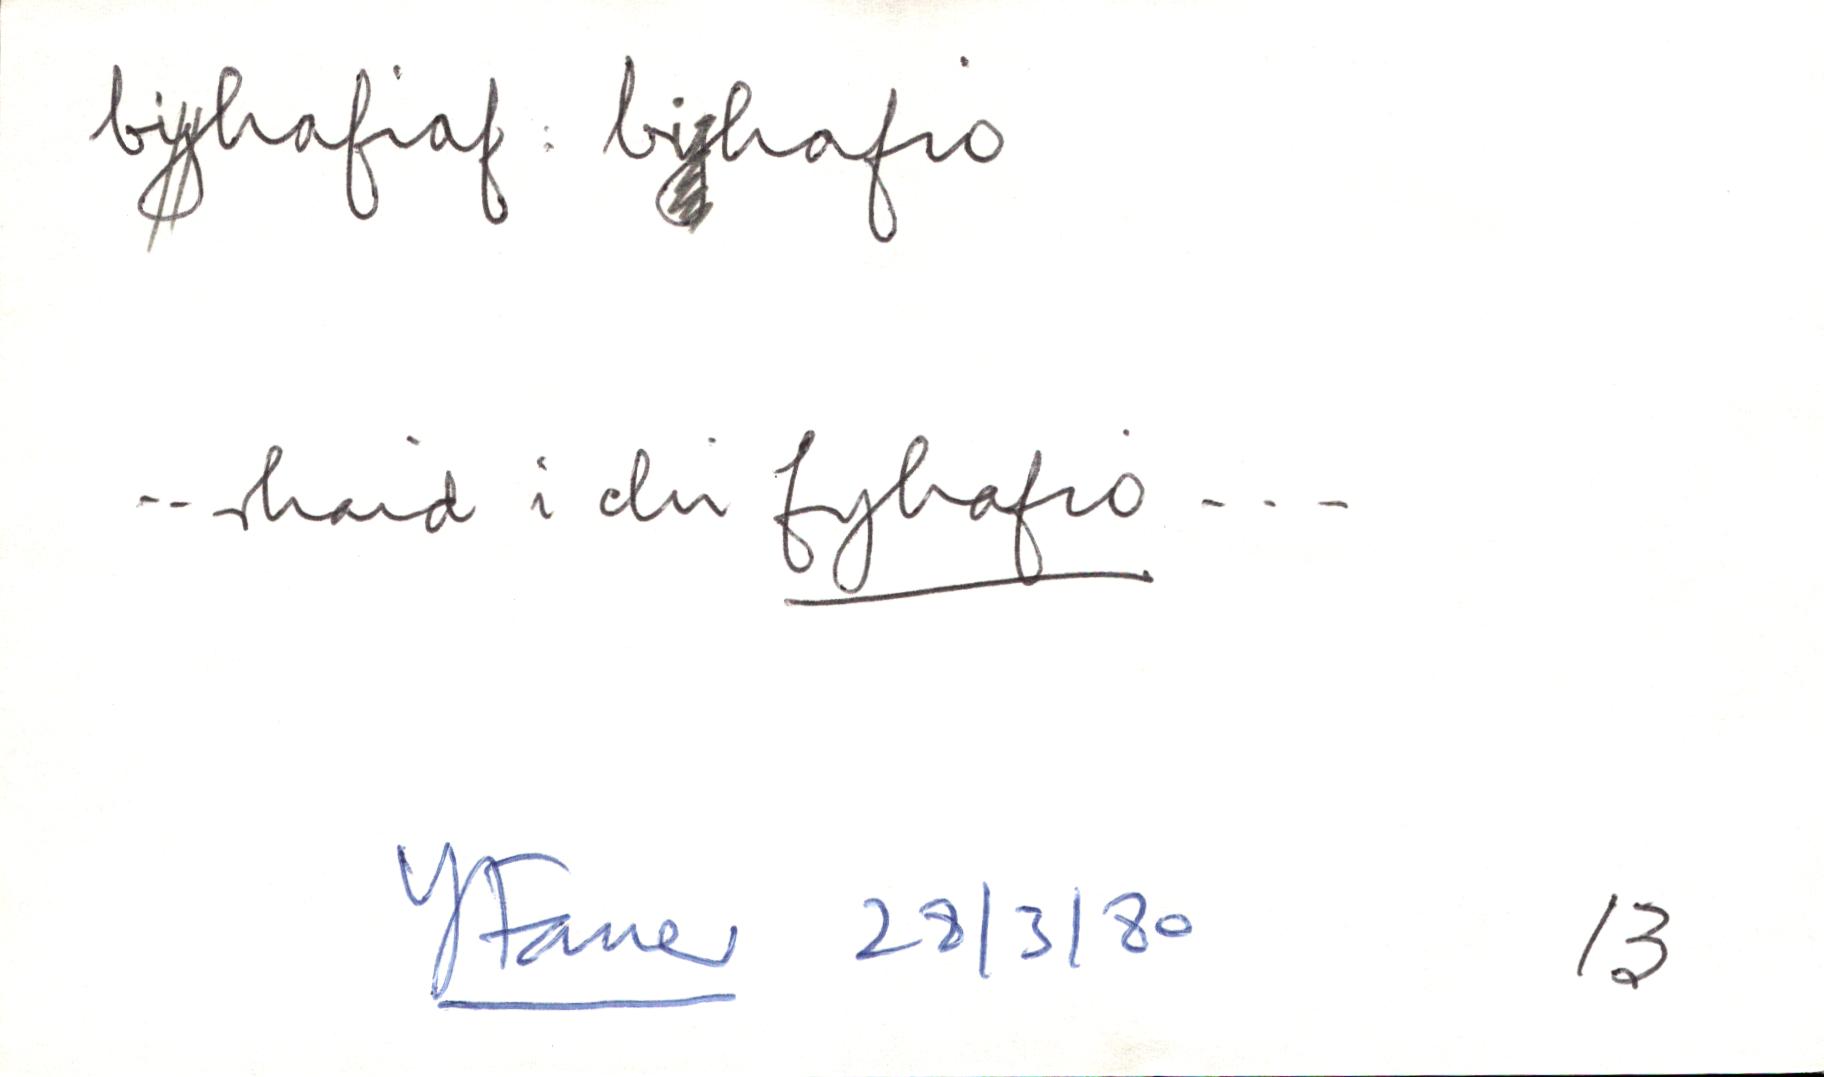 bihafiaf: bihafio
-- rhaid i chi fyhafio - - -
Y Faner 28/3/80 13